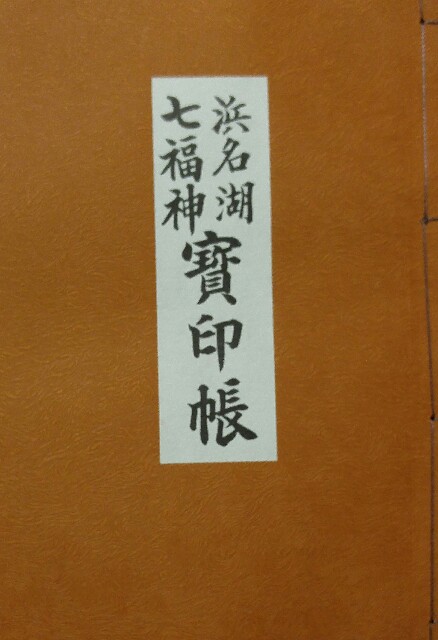 浜名湖
七福神
寳印帳